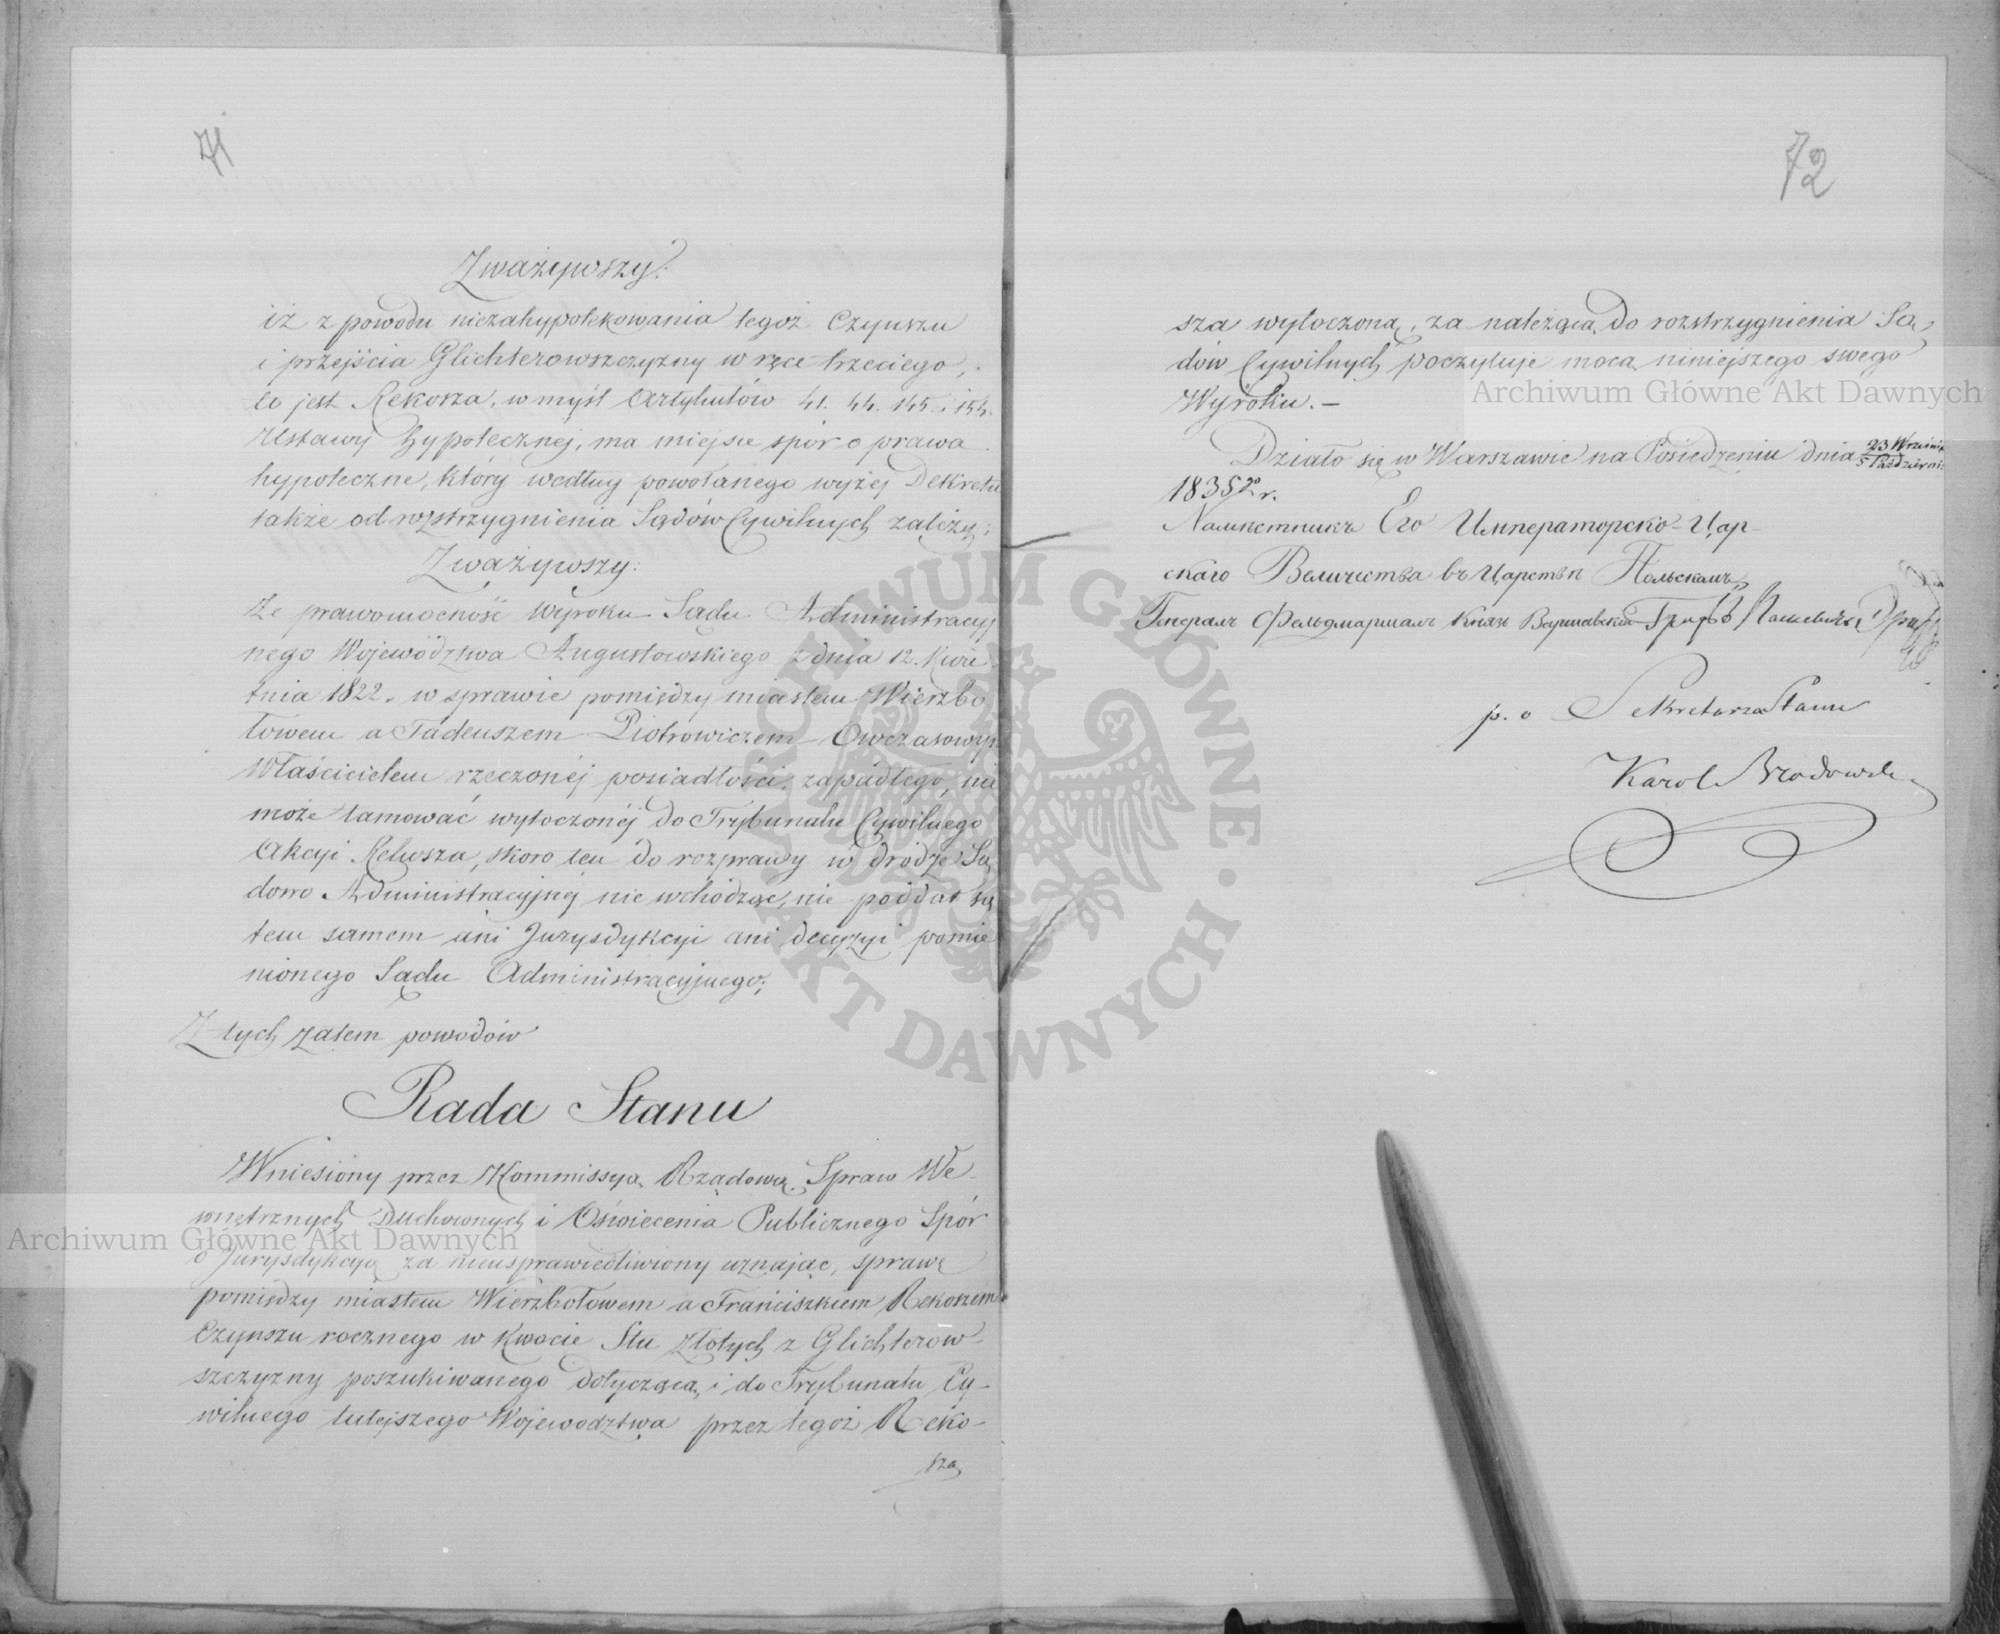 71
Zważywszy:
iż z powodu niezahypotekowania tegoż Czynszu
i przejścia Glichterowszczyzny w ręce trzeciego,
to jest Rekosza, w myśl Artykułów 41. 44. 145. i 154.
Ustawy hypotecznej, ma miejsce spór o prawa
hypoteczne, który według powołanego wyżej Dekretu
także od rozstrzygnienia Sądów Cywilnych zależy;
Zważywszy:
że prawomocność wyroku Sadu Administracyj
nego Województwa Augustowskiego z dnia 12. Kwie
tnia 1822. w sprawie pomiędzy miastem Wierzbo
łowem a Tadeuszem Piotrowiczem Owczasowym
Właścicielem rzeczonéj posiadłości, zapadłego, nie
może tamować wytoczonéj do Trybunału Cywilnego
Akcyi Rekosza, skoro ten do rozprawy w drodze Są
dowo Administracyjnéj nie wchodząc, nie poddał się
tem samem ani Jurysdykcyi ani decyzyi pomie
nionego Sądu Administracyjnego;
Z tych zatem powodów
Rada Stanu
Wniesiony przez Kommissyą Rządową Spraw We-
wnętrznych Duchownych i Oświecenia Publicznego Spór
o Jurysdykcyą za nieusprawiedliwiony uznając, sprawę
pomiędzy miastem Wierzbołowem a Franciszkiem Rekoszem
Czynszu rocznego w kwocie Stu Złotych z Glichterow-
szczyzny poszukiwanego dotyczącą, i do Trybunału Cy-
wilnego tutejszego Województwa przez tegoż Reko-
sza
72
sza wytoczoną, za należącą do rozstrzygnienia Są-
dów Cywilnych poczytuje mocą niniejszego swego
Wyroku.—
Działo się w Warszawie na Posiedzeniu dnia 23 Września
5 Październi
1835go r.
Намѣстникъ Его Императорско-Цар-
скаго Величества въ Царствѣ Польскомъ,
Генералъ Фельдмаршалъ Князь Варшавскій Графъ Паскевичъ Эрив
p. o Sekretarza Stanu
Karol Brodowski
Archiwum Główne Akt Dawnych
Archiwum Główne Akt Dawnych
ARCHIWUM GŁÓWNE AKT DAWNYCH